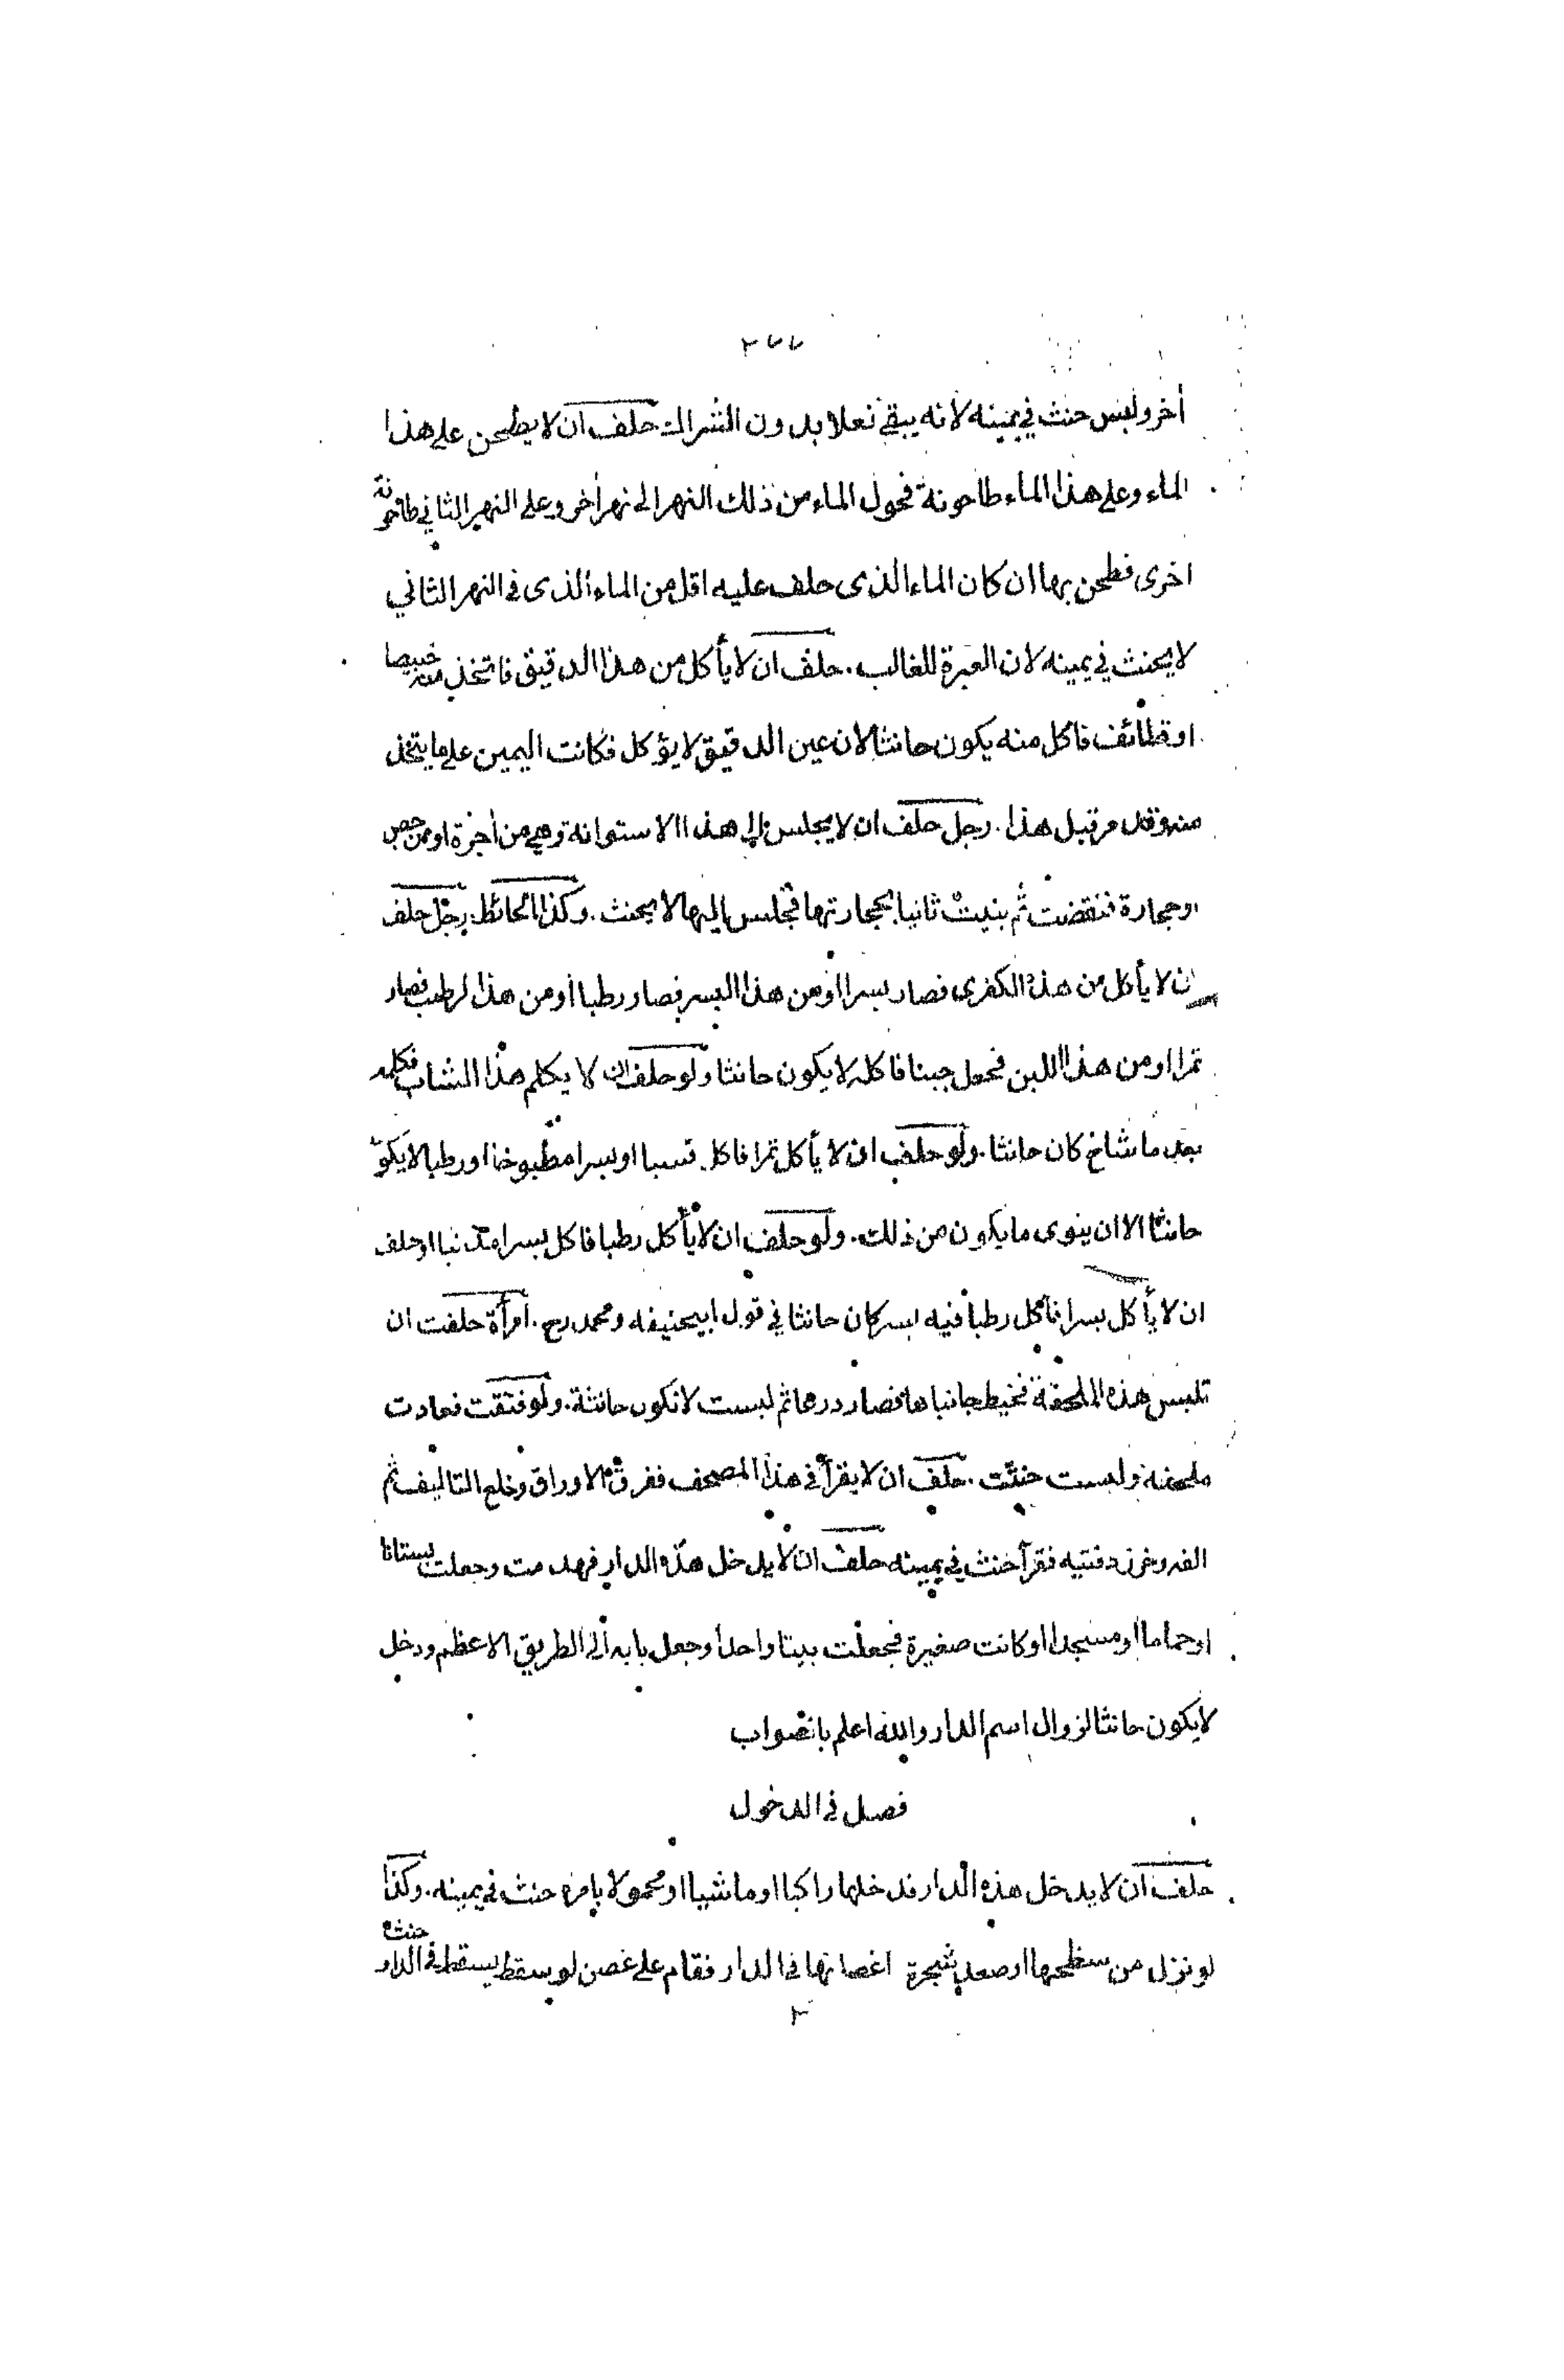 ٢٧٧
أخر ولبس حنث في يمينه لانه يبقى نعلا بدون الشراك حلف ان لا يطحن على هذا
الماء وعلى هذا الماء طاحونة فحول الماء من ذلك النهر الى نهر أخر وعلى النهر الثاني طاحونة
اخرى فطحن بها ان كان الماء الذى حلف عليه اقل من الماء الذى في النهر الثاني
لا يحنث في يمينه لان العبرة للغالب. حلف ان لا يأكل من هذا الدقيق فاتخذ منه خبيصا
او قطائف فاكل منه يكون حانثا لان عين الدقيق لا يؤكل فكانت اليمين على ما يتخذ
منه وقد مر قبل هذا. رجل حلف ان لا يجلس الى هذا الاستوانة وهي من اجرة او من جص
او حجارة فنقضت ثم بنيت ثانيا بحجارتها فجلس اليها لا يحنث. وكذا الحائط. رجل حلف
ان لا يأكل من هذا الكفرى فصار بسرا او من هذا البسر فصار رطبا أو من هذا لرطب فصار
تمرا او من هذا اللبن فجعل جبنا فاكله لا يكون حانثا ولو حلف ان لا يكلم هذا الشاب فكلمه
بعد ما شاخ كان حانثا. ولو حلف ان لا يأكل تمرا فاكل قسبا او بسرا مطبوخا او رطبا لا يكون
حانثا الا ان ينوى ما يكون من ذلك. ولو حلف ان لا يأكل رطبا فاكل بسرا مذنبا او حلف
ان لا يأكل بسرا فأكل رطبا فيه بسر كان حانثا في قول ابيحنيفه ومحمد رح. امرأة حلفت ان
تلبس هذه الملحفة فخيط جانباها فصار درعا ثم لبست لا تكون حانثة. ولو فتقت فعادت
ملحفة ولبست حنثت. حلف ان لا يقرأ في هذا المصحف ففرق الاوراق وخلع التاليف ثم
الفه وغرز دفتيه فقرأ حنث في يمينه حلف ان لا يدخل هذه الدار فهدمت وجعلت بستانا
او حماما او مسجدا او كانت صغيرة فجعلت بيتا واحدا وجعل بابه الى الطريق الاعظم ودخل
لا يكون حانثا لزوال اسم الدار والله اعلم بالصواب
فصل في الدخول
حلف ان لا يدخل هذه الدار فدخلها راكبا او ماشيا او محمولا بامره حنث في يمينه. وكذا
لو نزل من سطحها او صعد شجرة اغصانها في الدار فقام على غصن لو سقط يسقط في الدار حنث
٢